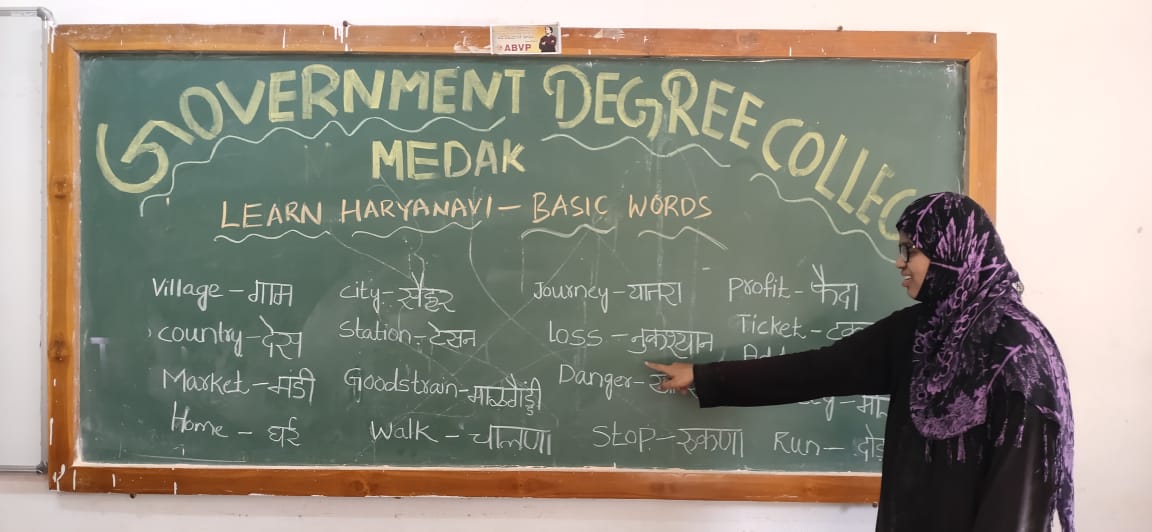 ABVP
GOVERNMENT DEGREE COLLEG
MEDAK
LEARN HARYANAVI - BASIC WORDS
Village - गाम City - सैहर Journey - यातरा Profit - फैदा
Country - देस Station - टेसन Loss - नुकश्यान Ticket -
Market - मंडी Goodstrain - माळगैड्डी Danger -
Home - घर्र Walk - चालणा Stop - रुकणा Run -